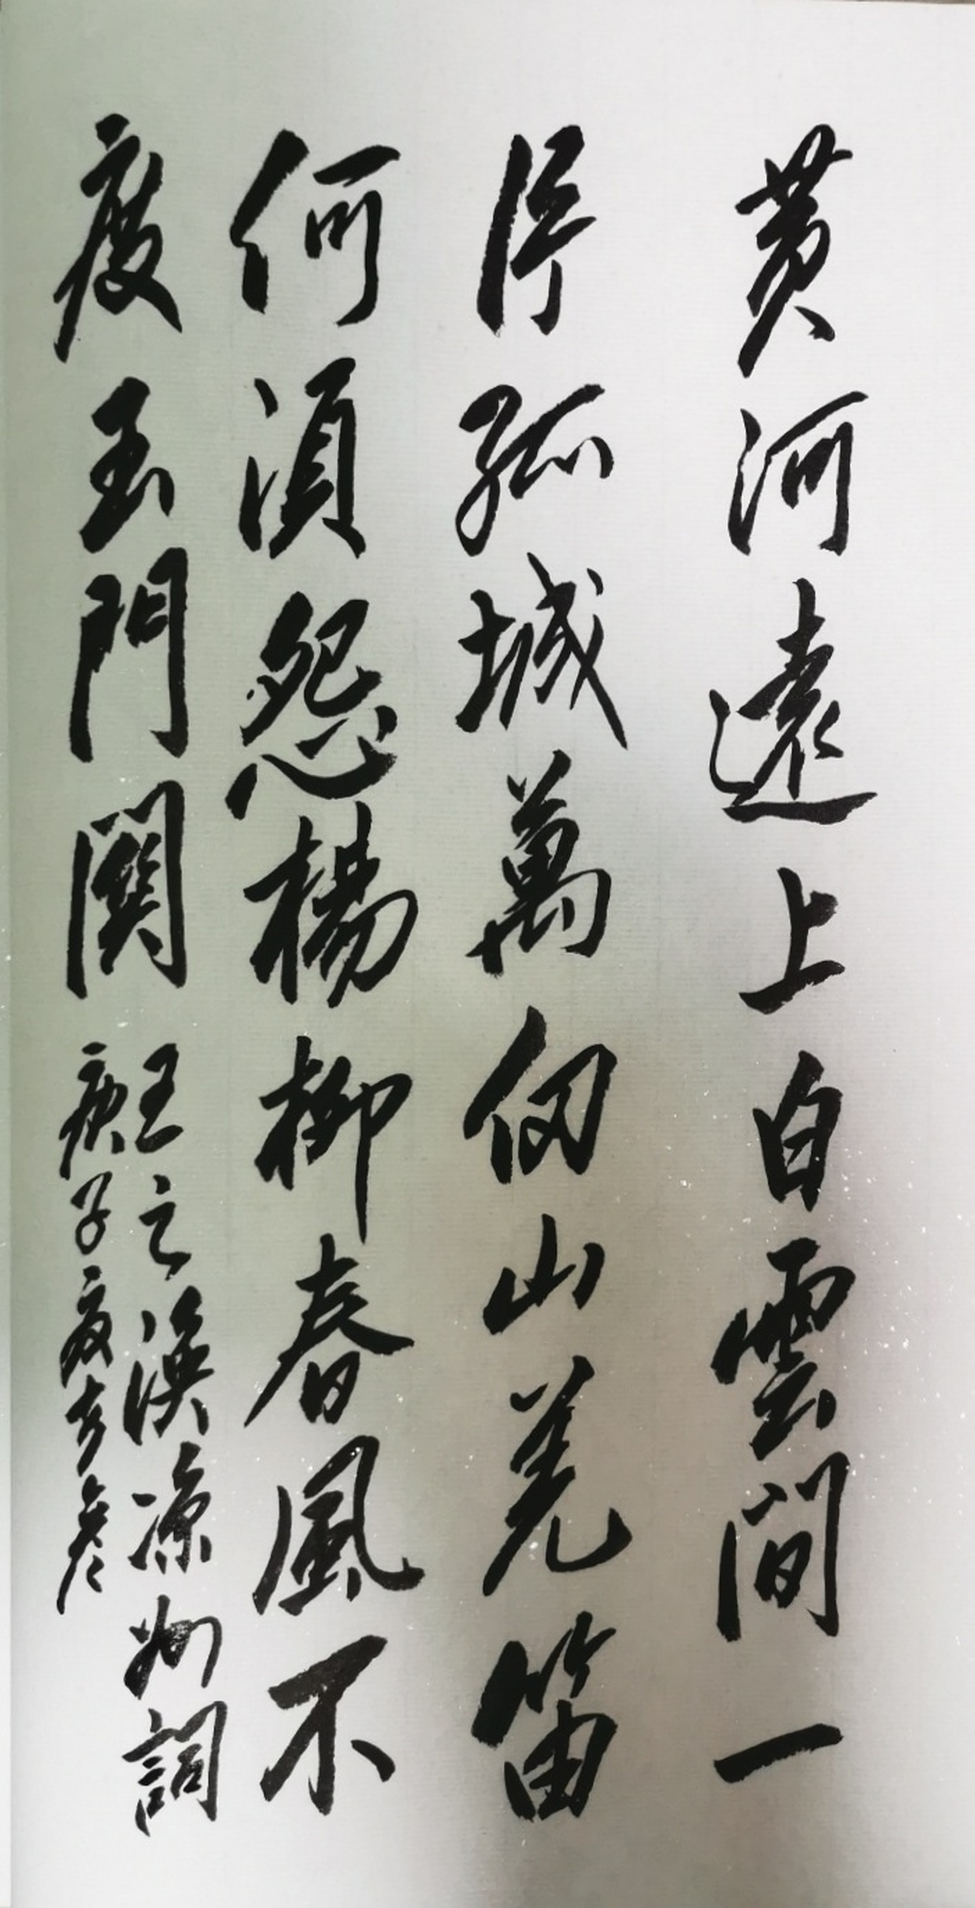 黄河遠上白雲間一
片孤城萬仞山羌笛
何須怨楊柳春風不
度玉門關
王之渙涼州詞
庚子夏